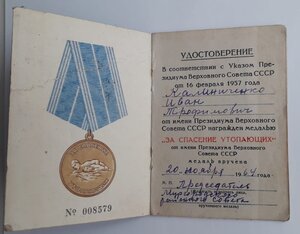 № 008579
УДОСТОВЕРЕНИЕ
В соответствии с Указом Пре-
зидиума Верховного Совета СССР
от 16 февраля 1957 года
Калиниченко
Иван
Трофимович
от имени Президиума Верховного
Совета СССР награжден медалью
„ЗА СПАСЕНИЕ УТОПАЮЩИХ“
от имени Президиума Верховного
Совета СССР
медаль вручена
20 ноября 1964 г.
М. П. Председатель